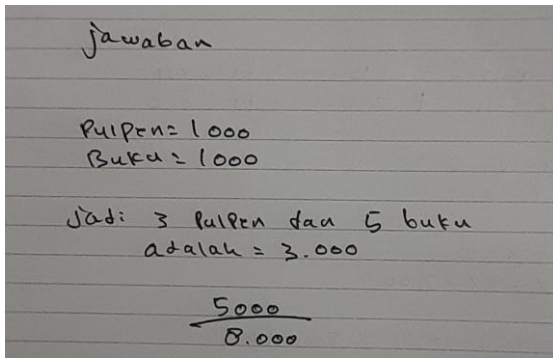 jawaban
Pulpen = 1000
Buku = 1000
jadi 3 Pulpen dan 5 buku
adalah = 3.000
5000
8.000